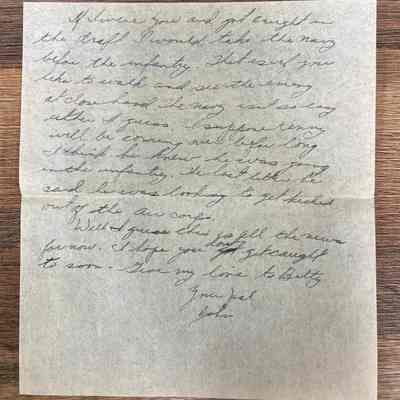 If I were you and got caught in
the draft I would take the navy
before the infantry. That is if you
like to walk and see the enemy
at close hand. The navy isn't so easy
either I guess. I suppose
will be coming over before long
I think he knew he was going
in the infantry. The last letter he
said he was looking to get kicked
out of the air corps.
Well I guess this is all the news
for now. I hope you don't get caught
to soon. Give my love to Betty
Your pal
John